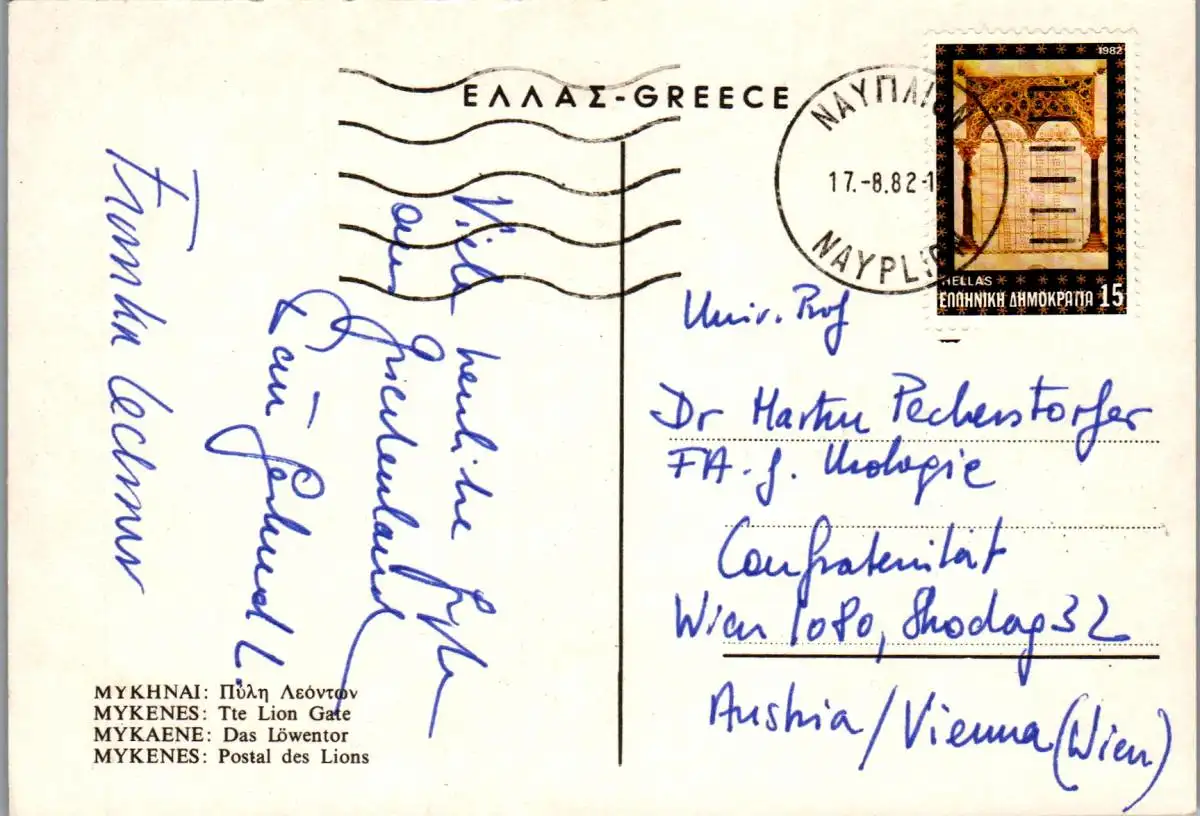 ΕΛΛΑΣ-GREECE
ΝΑΥΠΛΙΟΝ
17.-8.82-1
NAYPLION
1982
HELLAS
ΕΛΛΗΝΙΚΗ ΔΗΜΟΚΡΑΤΙΑ 15
Viele herzliche Grüße
aus Griechenland
Univ. Prof
Dr Martin Pecherstorfer
FA. f. Urologie
Confraternität
Wien 1080, Skodag 32
Austria / Vienna (Wien)
ΜΥΚΗΝΑΙ: Πύλη Λεόντων
MYKENES: Tte Lion Gate
MYKAENE: Das Löwentor
MYKENES: Postal des Lions